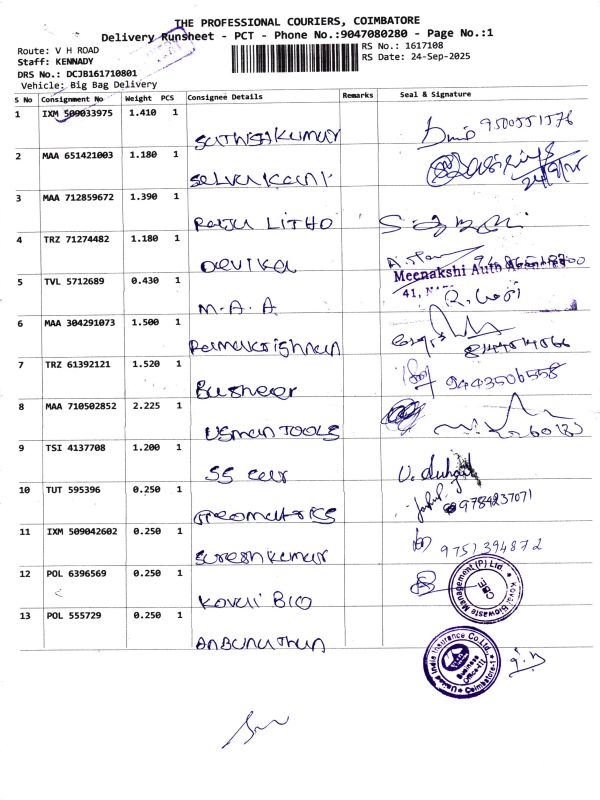 THE PROFESSIONAL COURIERS, COIMBATORE
Delivery Runsheet - PCT - Phone No.:9047080280 - Page No.:1
Route: V H ROAD
RS No.: 1617108
Staff: KENNADY
RS Date: 24-Sep-2025
DRS No.: DCJB161710801
Vehicle: Big Bag Delivery
S No Consignment No Weight PCS Consignee Details Remarks Seal & Signature
1 IXM 509033975 1.410 1 Sathishkumar 9500551576
2 MAA 651421003 1.180 1 Selvukani 24/9/25
3 MAA 712859672 1.390 1 Raju LITHO
4 TRZ 71274482 1.180 1 Devika
Meenakshi Auto
5 TVL 5712689 0.430 1 M.A.A 41,
6 MAA 304291073 1.500 1 Ramakrishnan
7 TRZ 61392121 1.520 1 Busheer 9443506558
8 MAA 710502852 2.225 1 Usman TOOLS
9 TSI 4137708 1.200 1 SS car
10 TUT 595396 0.250 1 9784237071
11 IXM 509042602 0.250 1 Sureshkumar 9751394872
12 POL 6396569 0.250 1 Kovai BIO
Kovai Biowaste Management (P) Ltd. CBE
13 POL 555729 0.250 1 Anbunathan
United India Insurance Co.Ltd., Business Office-III Coimbatore-1